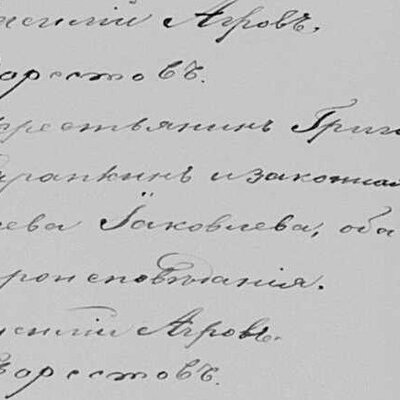 Агровъ,
орестовъ.
рестьянинъ Григ
рапкинъ и законная
ева Іаковлева, оба
вроисповѣданія.
Агровъ.
орестовъ.